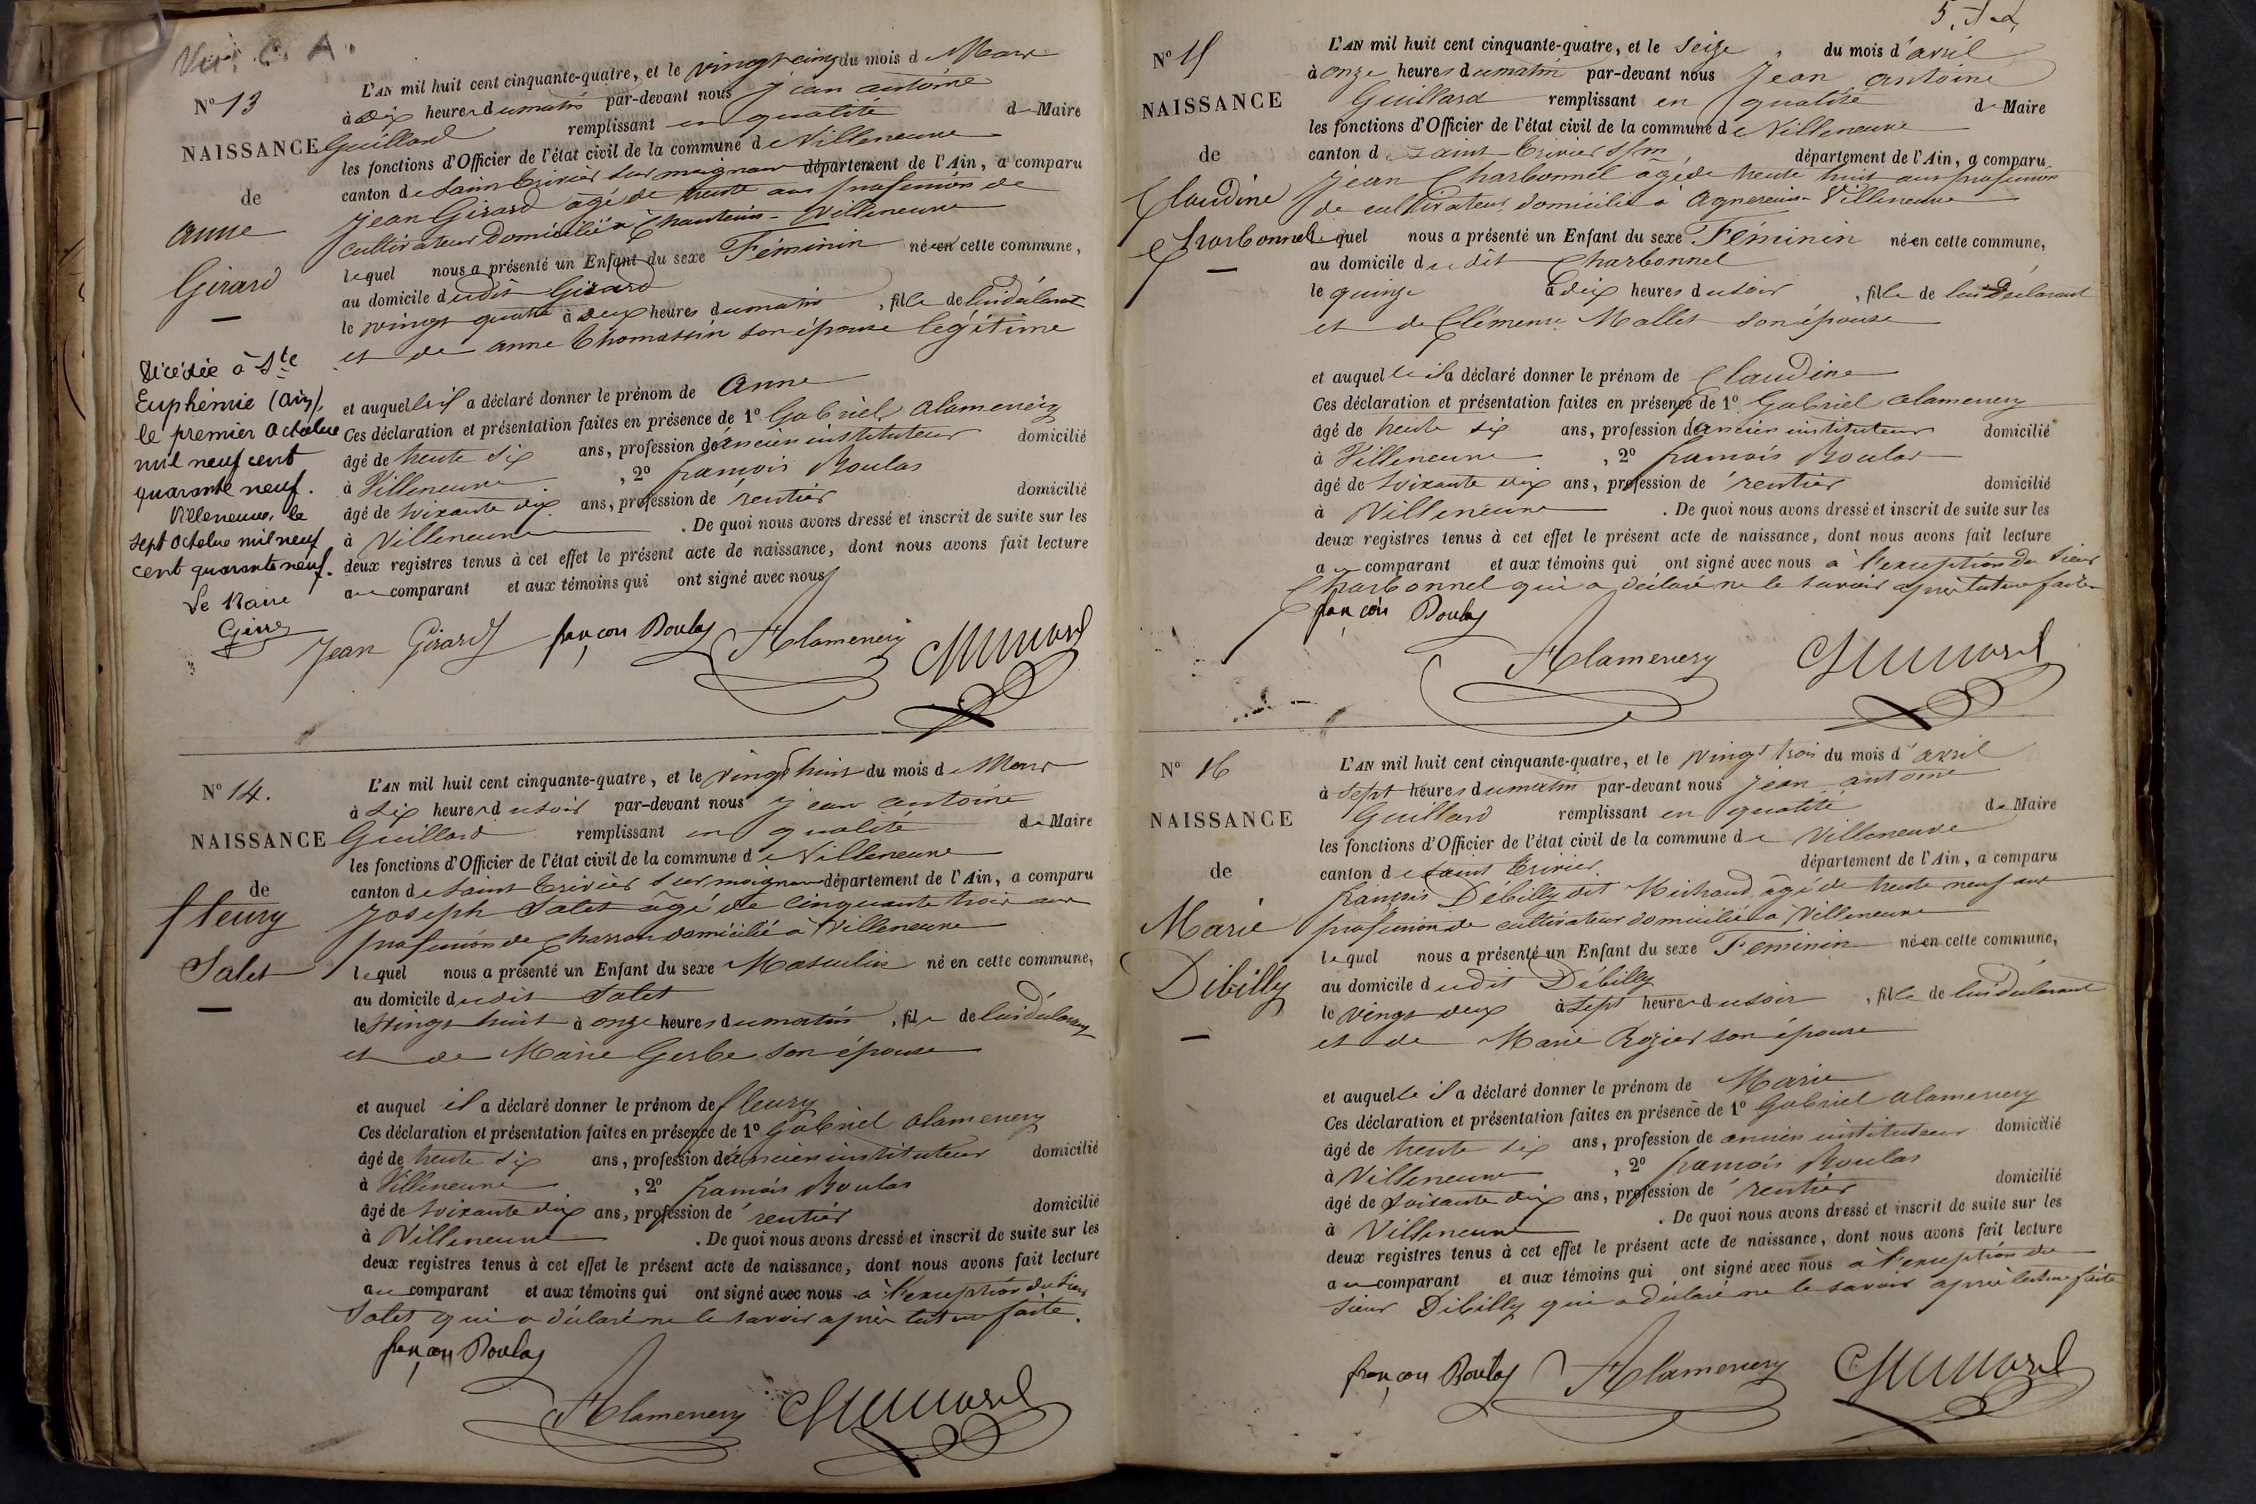 Vu. C. A.
N° 13
NAISSANCE
de
Anne
Girard
Décédée à Ste
Euphémie (Ain),
le premier Octobre
mil neuf cent
quarante neuf.
Villeneuve, le
sept Octobre mil neuf
cent quarante neuf.
Le Maire
L'AN mil huit cent cinquante-quatre, et le vingt cinq du mois de Mars
à dix heures du matin par-devant nous jean antoine
Guillard remplissant en qualité de Maire
les fonctions d'Officier de l'état civil de la commune de Villeneuve
canton de Saint Trivier sur moignan département de l'Ain, a comparu
Jean Girard âgé de trente ans profession de
cultivateur domicilié à Chanteins - Villeneuve
lequel nous a présenté un Enfant du sexe Féminin né en cette commune,
au domicile dudit Girard
le vingt quatre à deux heures du matin, fille de lui déclarant
et de anne Thomassin son épouse légitime
et auquelle il a déclaré donner le prénom de Anne
Ces déclaration et présentation faites en présence de 1° Gabriel alamenery
âgé de trente six ans, profession de ancien instituteur domicilié
à Villeneuve, 2° françois Boulas
âgé de soixante dix ans, profession de rentier domicilié
à Villeneuve. De quoi nous avons dressé et inscrit de suite sur les
deux registres tenus à cet effet le présent acte de naissance, dont nous avons fait lecture
au comparant et aux témoins qui ont signé avec nous
Jean Girard françois Boulas Alamenery Guillard
N° 14.
NAISSANCE
de
fleury
Salet
L'AN mil huit cent cinquante-quatre, et le vingt huit du mois de Mars
à six heures du soir par-devant nous jean antoine
Guillard remplissant en qualité de Maire
les fonctions d'Officier de l'état civil de la commune de Villeneuve
canton de Saint Trivier sur moignan département de l'Ain, a comparu
Joseph Salet âgé de cinquante trois ans
profession de Charron domicilié à Villeneuve
lequel nous a présenté un Enfant du sexe Masculin né en cette commune,
au domicile dudit Salet
le vingt huit à onze heures du matin, fils de lui déclarant
et de Marie Gerbe son épouse
et auquel il a déclaré donner le prénom de fleury
Ces déclaration et présentation faites en présence de 1° Gabriel alamenery
âgé de trente six ans, profession de ancien instituteur domicilié
à Villeneuve, 2° françois Boulas
âgé de soixante dix ans, profession de rentier domicilié
à Villeneuve. De quoi nous avons dressé et inscrit de suite sur les
deux registres tenus à cet effet le présent acte de naissance, dont nous avons fait lecture
au comparant et aux témoins qui ont signé avec nous à l'exception du sieur
Salet qui a déclaré ne le savoir après lecture faite.
françois Boulas
Alamenery Guillard
N° 15
NAISSANCE
de
Claudine
Charbonnel
L'AN mil huit cent cinquante-quatre, et le seize du mois d'avril
à onze heures du matin par-devant nous Jean antoine
Guillard remplissant en qualité de Maire
les fonctions d'Officier de l'état civil de la commune de Villeneuve
canton de saint Trivier s/m département de l'Ain, a comparu
jean Charbonnel âgé de trente huit ans profession
de cultivateur domicilié à Agnereins Villeneuve
lequel nous a présenté un Enfant du sexe Féminin né en cette commune,
au domicile dudit Charbonnel
le quinze à dix heures du soir, fille de lui Déclarant
et de Clémence Mallet son épouse
et auquelle il a déclaré donner le prénom de Claudine
Ces déclaration et présentation faites en présence de 1° Gabriel alamenery
âgé de trente six ans, profession d'ancien instituteur domicilié
à Villeneuve, 2° françois Boulas
âgé de soixante dix ans, profession de rentier domicilié
à Villeneuve. De quoi nous avons dressé et inscrit de suite sur les
deux registres tenus à cet effet le présent acte de naissance, dont nous avons fait lecture
au comparant et aux témoins qui ont signé avec nous à l'exception du sieur
Charbonnel qui a déclaré ne le savoir après lecture faite
françois Boulas
Alamenery Guillard
N° 16
NAISSANCE
de
Marie
Débilly
L'AN mil huit cent cinquante-quatre, et le vingt trois du mois d'avril
à sept heures du matin par-devant nous jean antoine
Guillard remplissant en qualité de Maire
les fonctions d'Officier de l'état civil de la commune de Villeneuve
canton de saint Trivier département de l'Ain, a comparu
françois Débilly dit Michaud âgé de trente neuf ans
profession de cultivateur domicilié à Villeneuve
lequel nous a présenté un Enfant du sexe Féminin né en cette commune,
au domicile dudit Débilly
le vingt deux à sept heures du soir, fille de lui déclarant
et de Marie Rozier son épouse
et auquelle il a déclaré donner le prénom de Marie
Ces déclaration et présentation faites en présence de 1° Gabriel alamenery
âgé de trente six ans, profession de ancien instituteur domicilié
à Villeneuve, 2° françois Boulas
âgé de soixante dix ans, profession de rentier domicilié
à Villeneuve. De quoi nous avons dressé et inscrit de suite sur les
deux registres tenus à cet effet le présent acte de naissance, dont nous avons fait lecture
au comparant et aux témoins qui ont signé avec nous à l'exception du
sieur Débilly qui a déclaré ne le savoir après lecture faite
françois Boulas Alamenery Guillard